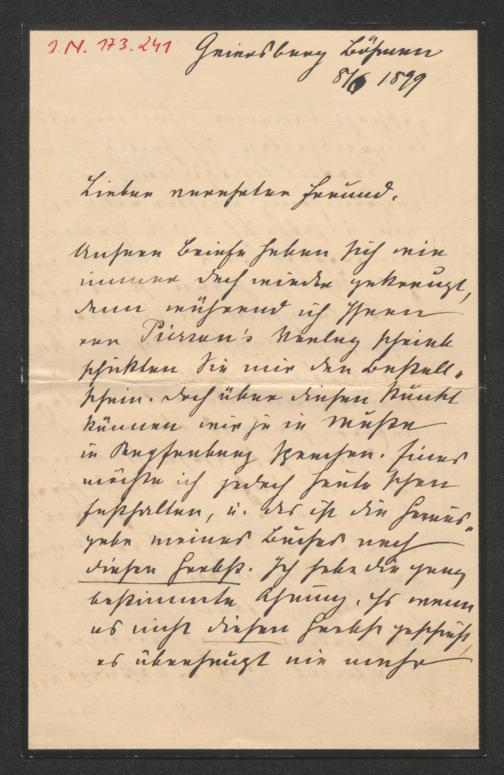 I.N. 173.241
Geiersberg Böhmen
8/6 1899
Lieber verehrter Freund.
Unsere Briefe haben sich wie
immer doch wieder gekreuzt,
denn während ich Ihnen
von Pierson's Verlag schrieb
schickten Sie mir den Bestell-
schein. Doch über diesen Punkt
können wir ja in Muße
in sprechen. Eines
möchte ich jedoch heute schon
festhalten, u. das ist die Heraus-
gabe meines Buches noch
diesen Herbst. Ich habe die ganz
bestimmte Ahnung, daß wenn
es nicht diesen Herbst geschieht,
es überhaupt nie mehr